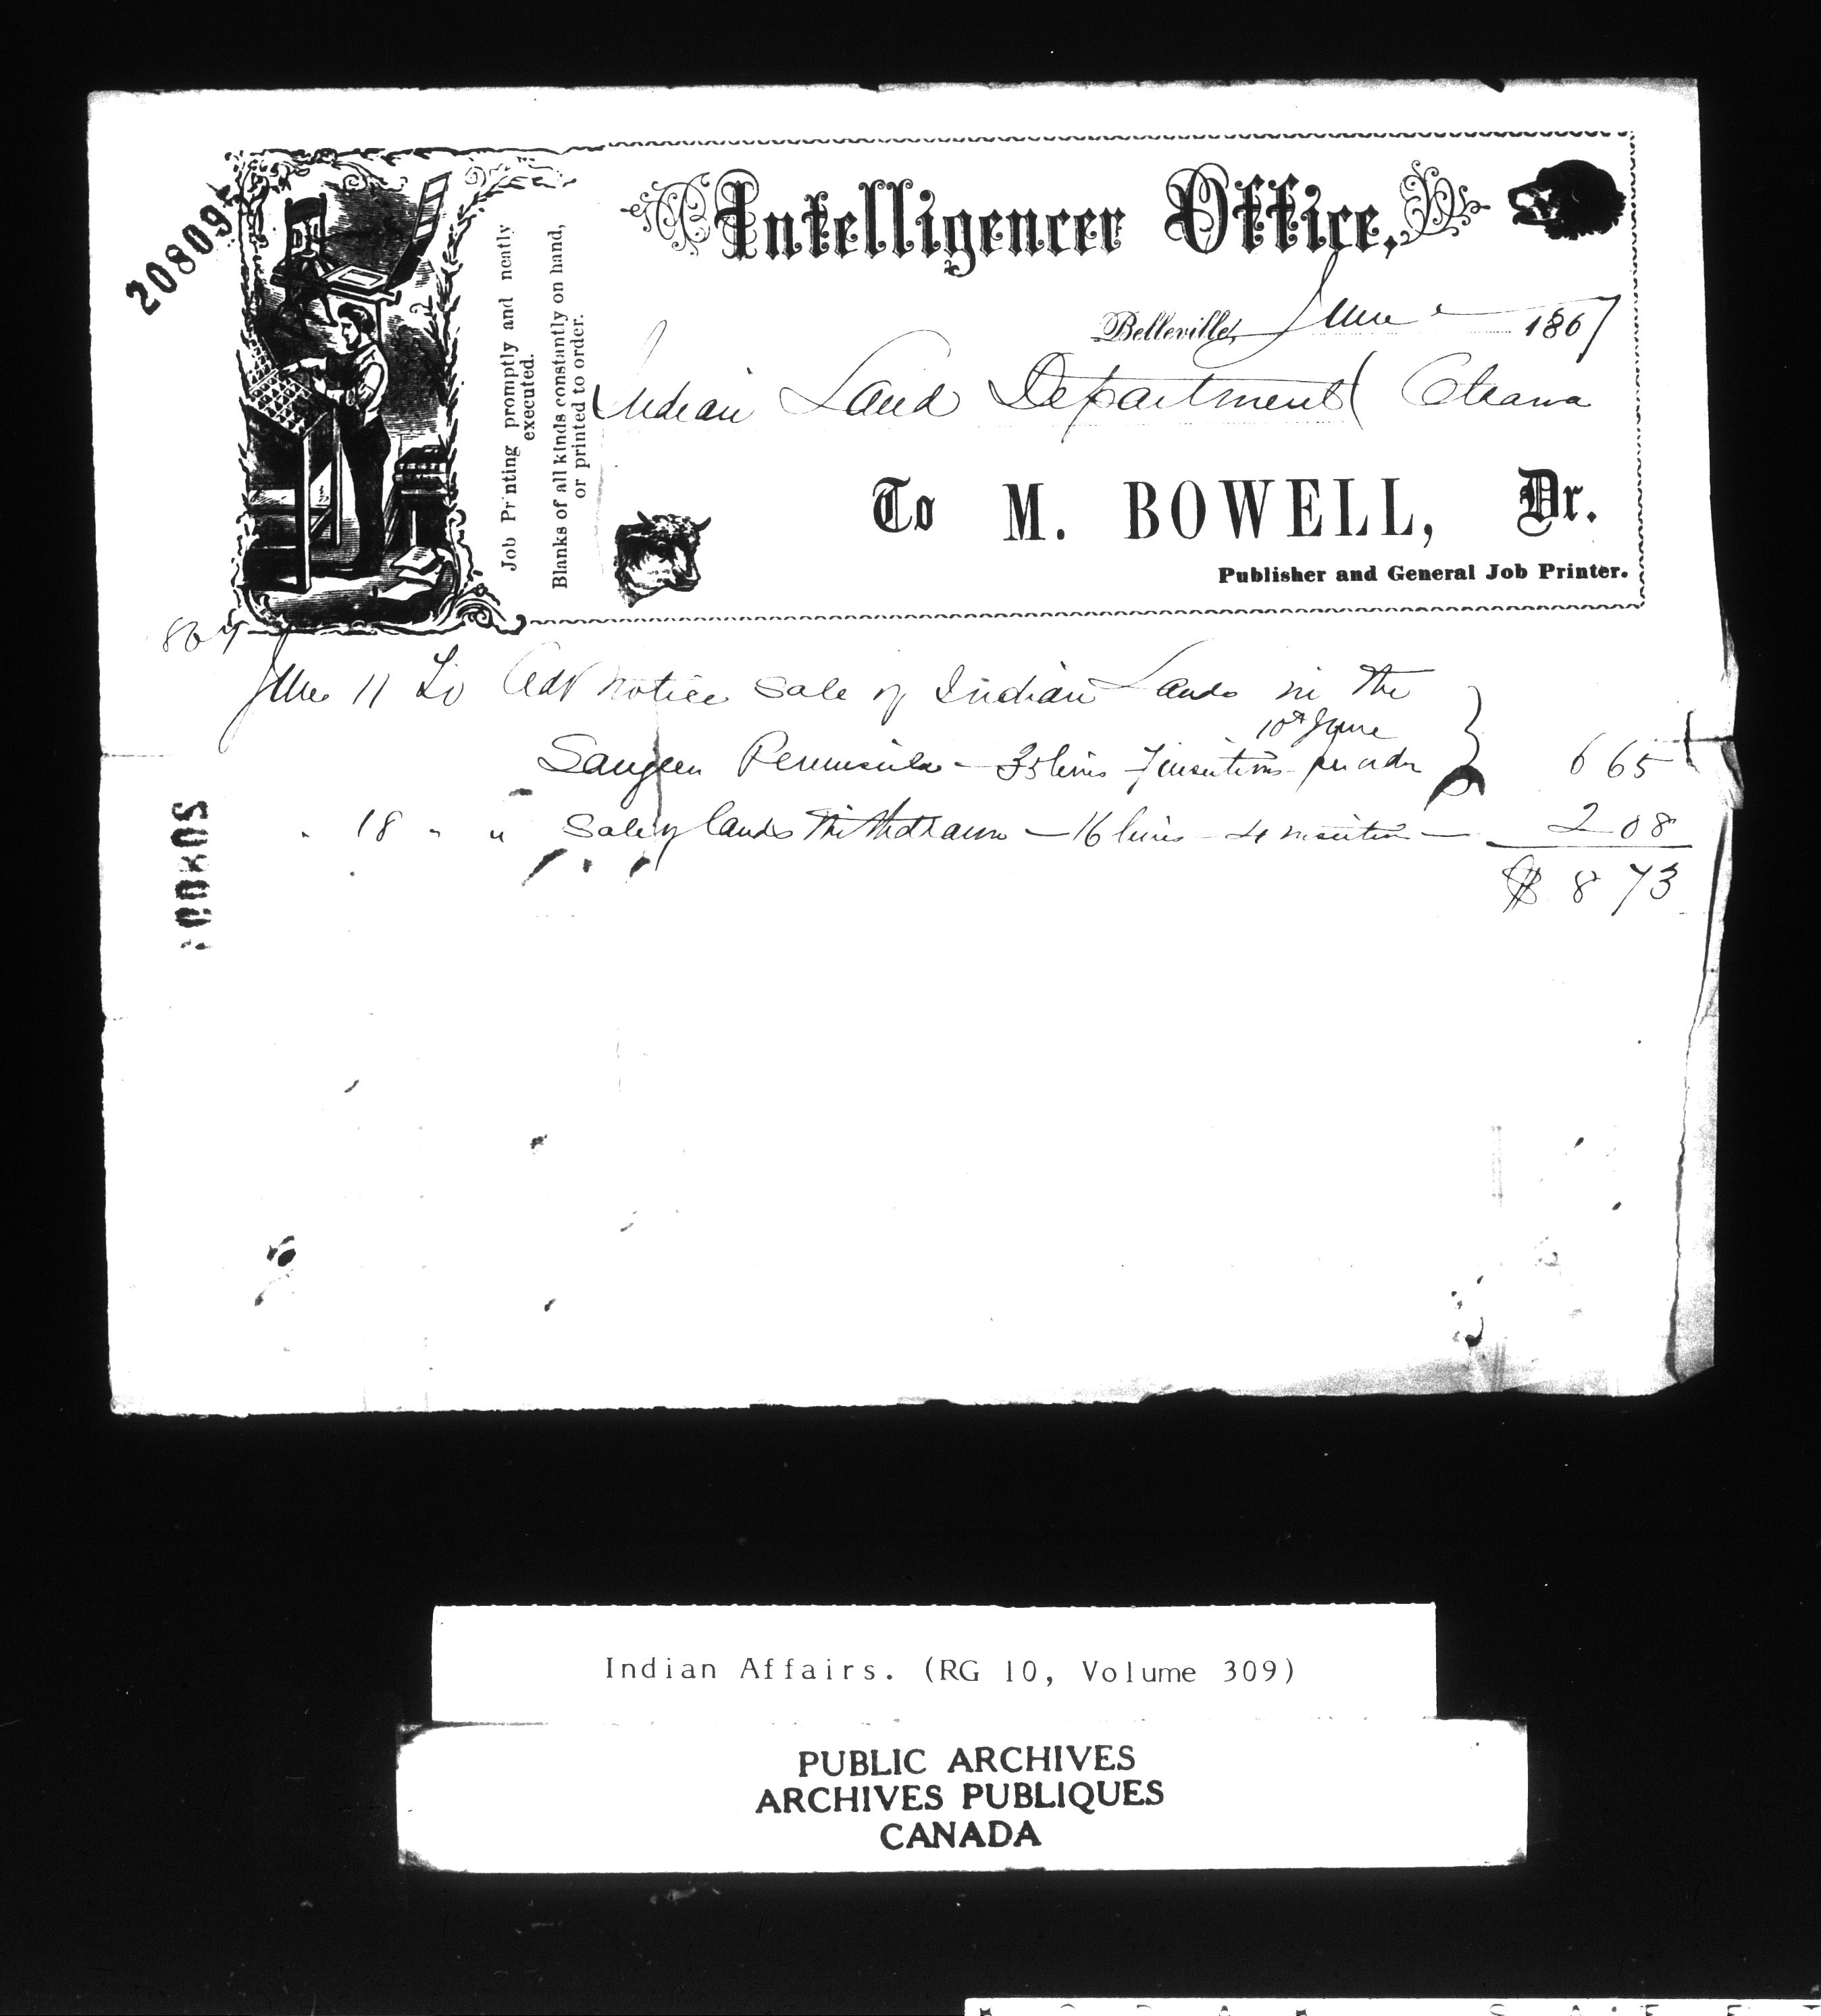 208095
Intelligencer Office.
Belleville, June 1867
Indian Land Department Ottawa
To M. BOWELL, Dr.
Publisher and General Job Printer.
Job Printing promptly and neatly
executed.
Blanks of all kinds constantly on hand,
or printed to order.
867
June 11 To Adv notice Sale of Indian Lands in the
10th June
Saugeen Peninsula - 35 lines 7 insertions per order 6 65
" 18 " " Sale of lands Withdrawn - 16 lines - 4 insertion - 2 08
$ 8 73
Indian Affairs. (RG 10, Volume 309)
PUBLIC ARCHIVES
ARCHIVES PUBLIQUES
CANADA